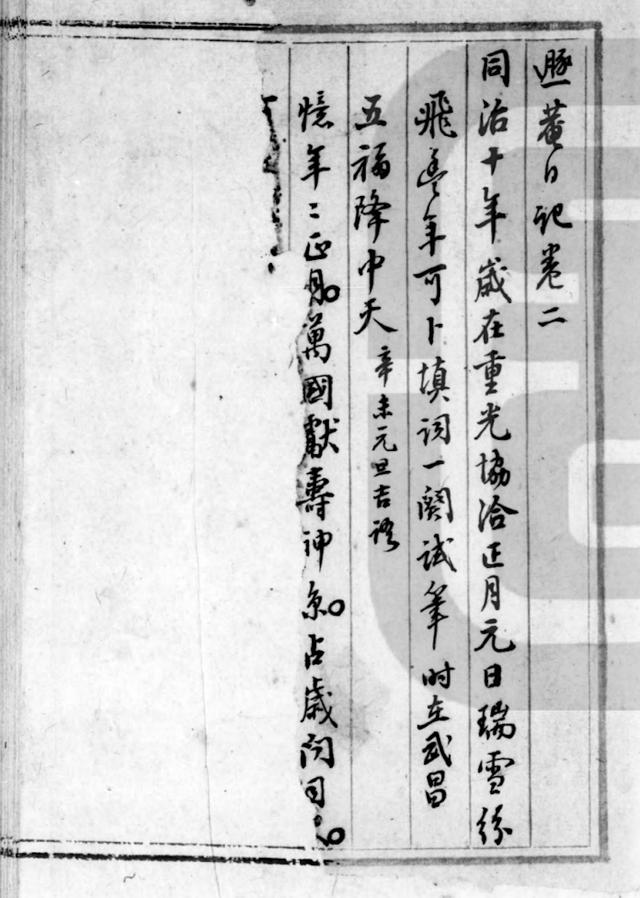 遯菴日記卷二
同治十年歲在重光協洽正月元日瑞雪紛
飛豐年可卜填詞一闋試筆時在武昌
五福降中天 辛未元旦吉語
憶年〻正月萬國獻壽神京占歲問